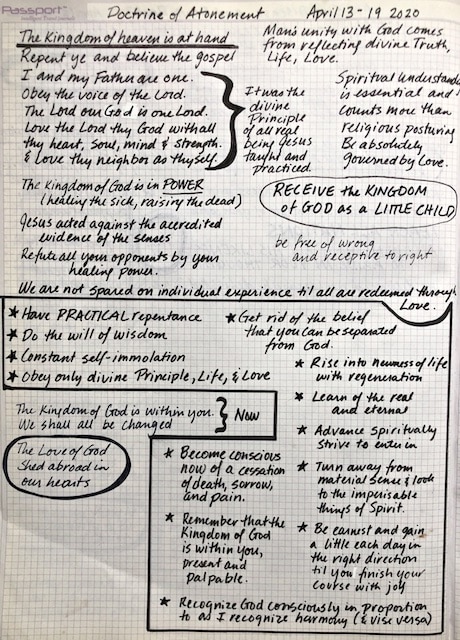 Passport
Doctrine of Atonement April 13-19 2020
The Kingdom of heaven is at hand
Repent ye and believe the gospel
I and my Father are one.
Obey the voice of the Lord.
The Lord our God is one Lord.
Love the Lord thy God with all
thy heart, Soul, mind & strength.
& Love thy neighbor as thyself.
It was the
divine
Principle
of all real
being Jesus
taught and
practiced.
Man's unity with God comes
from reflecting divine Truth,
Life, Love.
Spiritual Understanding
is essential and
counts more than
religious posturing
Be absolutely
governed by Love.
The Kingdom of God is in POWER
(healing the sick, raising the dead)
Jesus acted against the accredited
evidence of the senses
Refute all your opponents by your
healing power.
RECEIVE the KINGDOM
of GOD as a LITTLE CHILD
be free of wrong
and receptive to right
We are not spared on individual experience til all are redeemed through
Love.
★ Have PRACTICAL repentance
★ Do the will of wisdom
★ Constant self-immolation
★ Obey only divine Principle, Life, & Love
★ Get rid of the belief
that you can be separated
from God.
★ Rise into newness of life
with regeneration
★ Learn of the real
and eternal
★ Advance spiritually
strive to enter in
★ Turn away from
material sense & look
to the imperisable
things of Spirit.
★ Be earnest and gain
a little each day in
the right direction
til you finish your
course with joy
The Kingdom of God is within you.
We shall all be changed
Now
The Love of God
Shed abroad in
our hearts
★ Become conscious
now of a cessation
of death, sorrow,
and pain.
★ Remember that the
Kingdom of God
is within you,
present and
palpable.
★ Recognize God consciously in proportion
to as I recognize harmony (& vise versa)